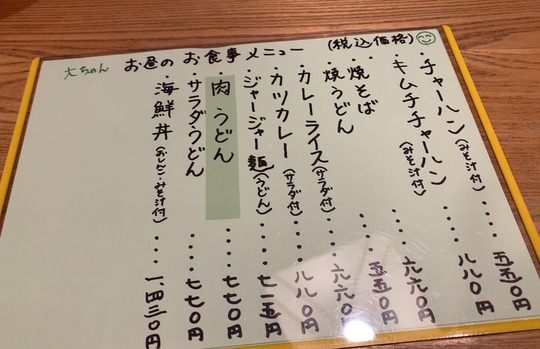 お昼のお食事メニュー (税込価格)
大ちゃん
・チャーハン(みそ汁付)....五五〇円
・キムチチャーハン(みそ汁付)....八八〇円
・焼そば....六六〇円
・焼うどん....五五〇円
・カレーライス(サラダ付)....六六〇円
・カツカレー(サラダ付)....八八〇円
・ジャージャー麺(うどん)....七一五円
・肉うどん....七七〇円
・サラダうどん....七七〇円
・海鮮丼(おしんこ・みそ汁付)....一、四三〇円